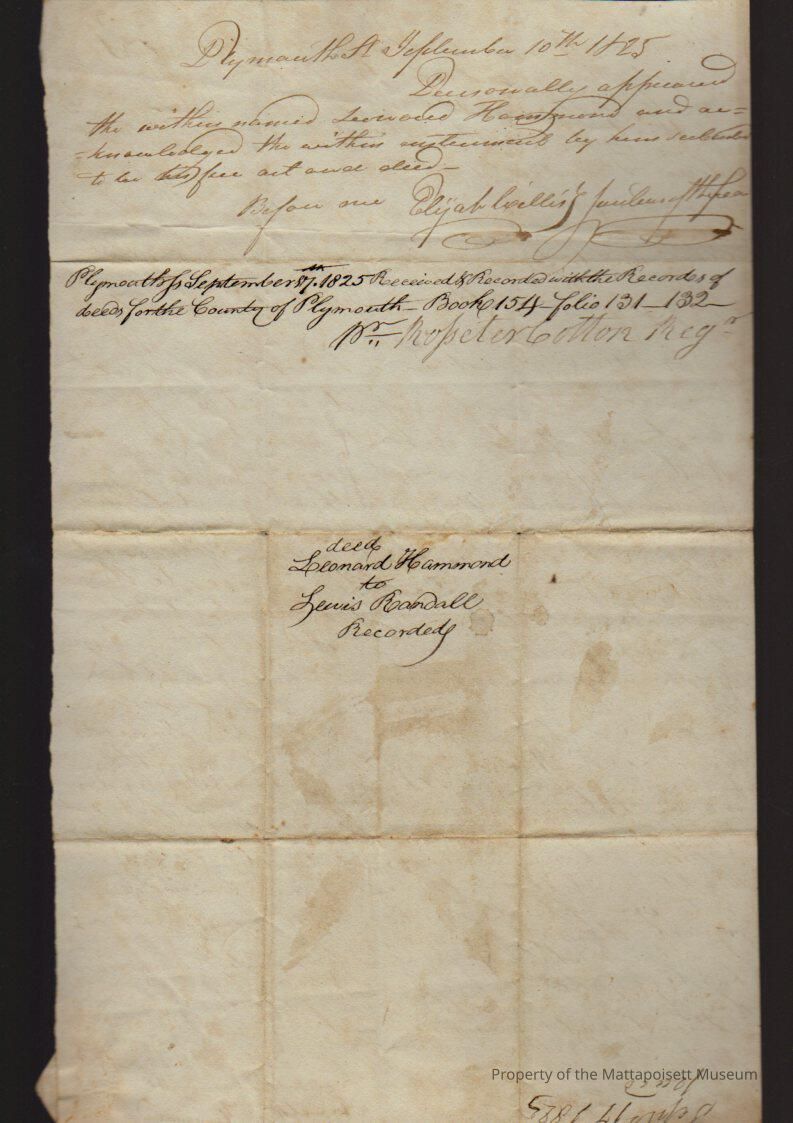 Plymouth Ss September 10th 1825
Personally appeared
the within named Leonard Hammond and ac=
=knowledged the within instrument by him subscribed
to be his free act and deed—
Before me Elijah Willis Justice of the Peace
Plymouth ss September 17th 1825 Received & Recorded with the Records of
deeds for the County of Plymouth— Book 154 folio 131—132—
Pr. Rosseter Cotton Regr
deed
Leonard Hammond
to
Lewis Randall
Recorded
Property of the Mattapoisett Museum
Septr 17 1825